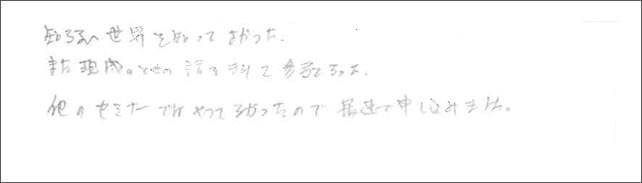 知らない世界を知ってよかった.
また現成のときの話も聞けて参考になった.
他のセミナーではやってなかったので 早速で申し込みました。